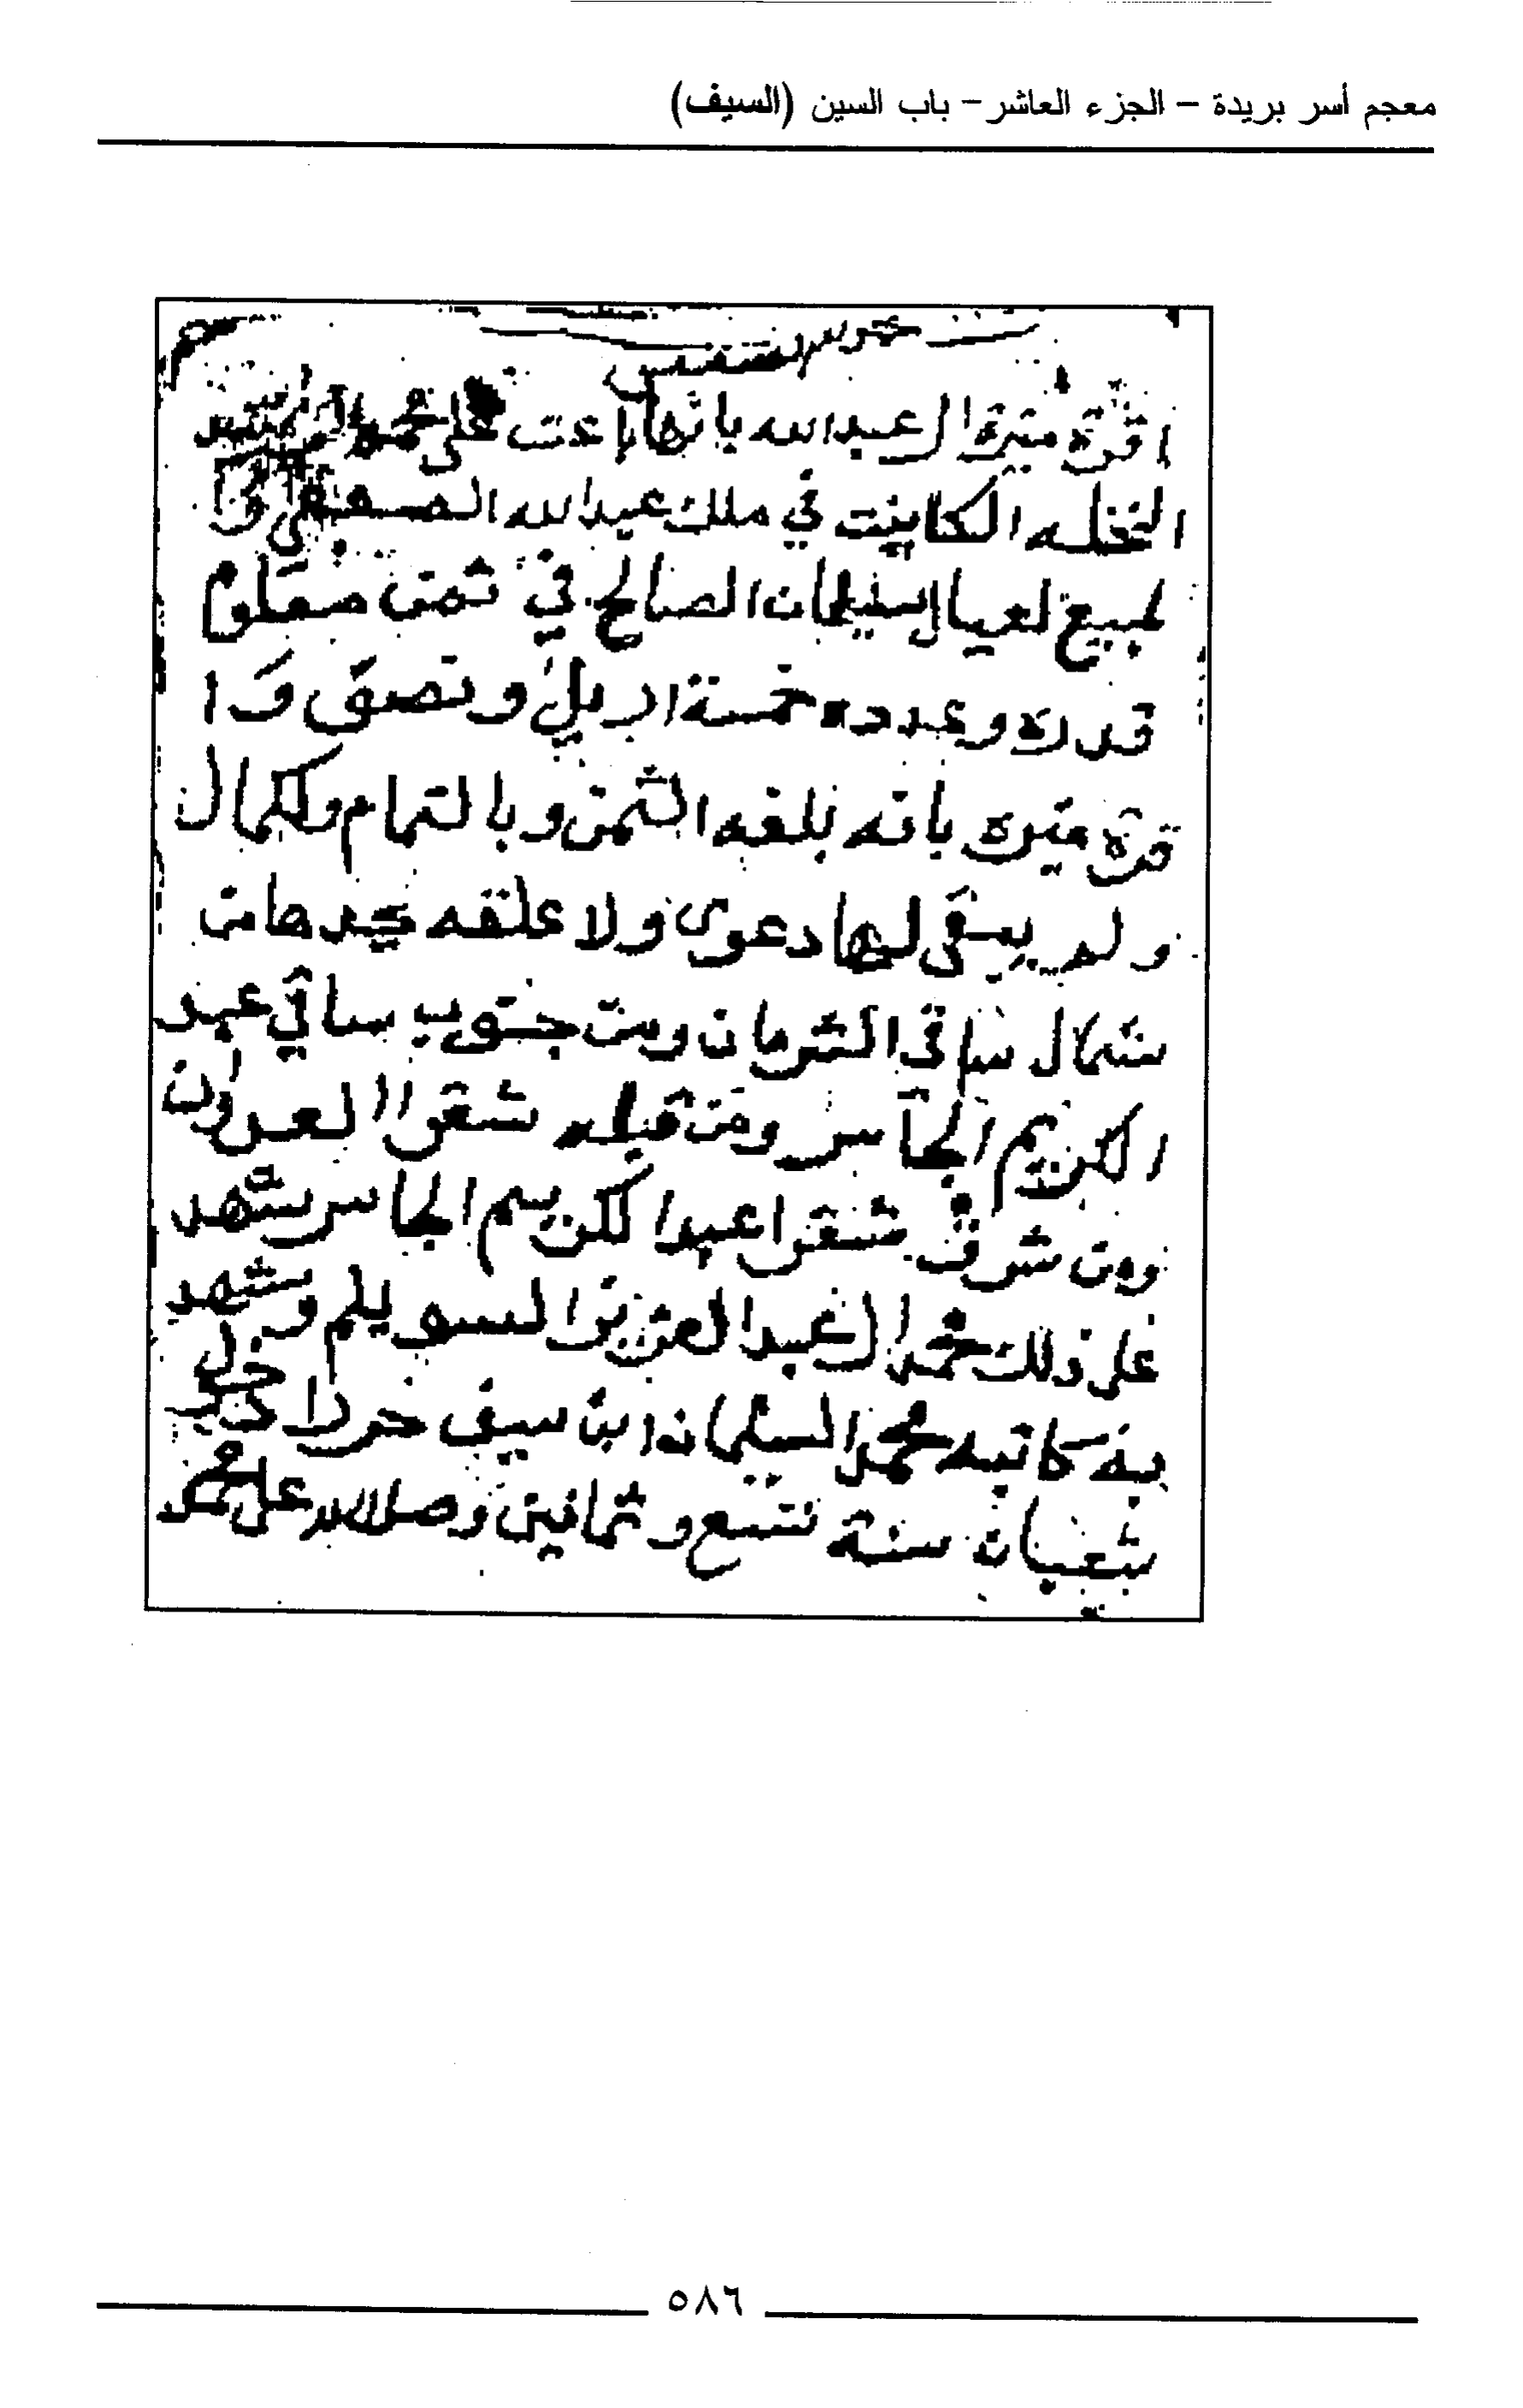 معجم أسر بريدة – الجزء العاشر – باب السين (السيف)
اقرة منيرة ال عبدالله بانها باعت على محمد
النخله الكاينت في ملك عبدالله
لمبيع لعيال اسليمان الصالح في ثمن معلوم
قدره وعدده خمسة اريل ونصف وا
قرة منيره بانه بلغه الثمن وبالتمام ولكمال
ولم يبقى لها دعوى ولا علقه يحدها من
شمال ساقي الشرمان ومن جنوب ساقي عبد
الكريم الجاسر ومن قبله شقرا العدوان
ومن شرق شقرا عبدا لكريم الجاسر شهد
على ذلك محمد ال عبدالعزيز السويلم وشهد
به كاتبه محمد السليمان ابن سيف حرر
شعبان سنة تسع وثمانين وصلى الله على محمد
٥٨٦